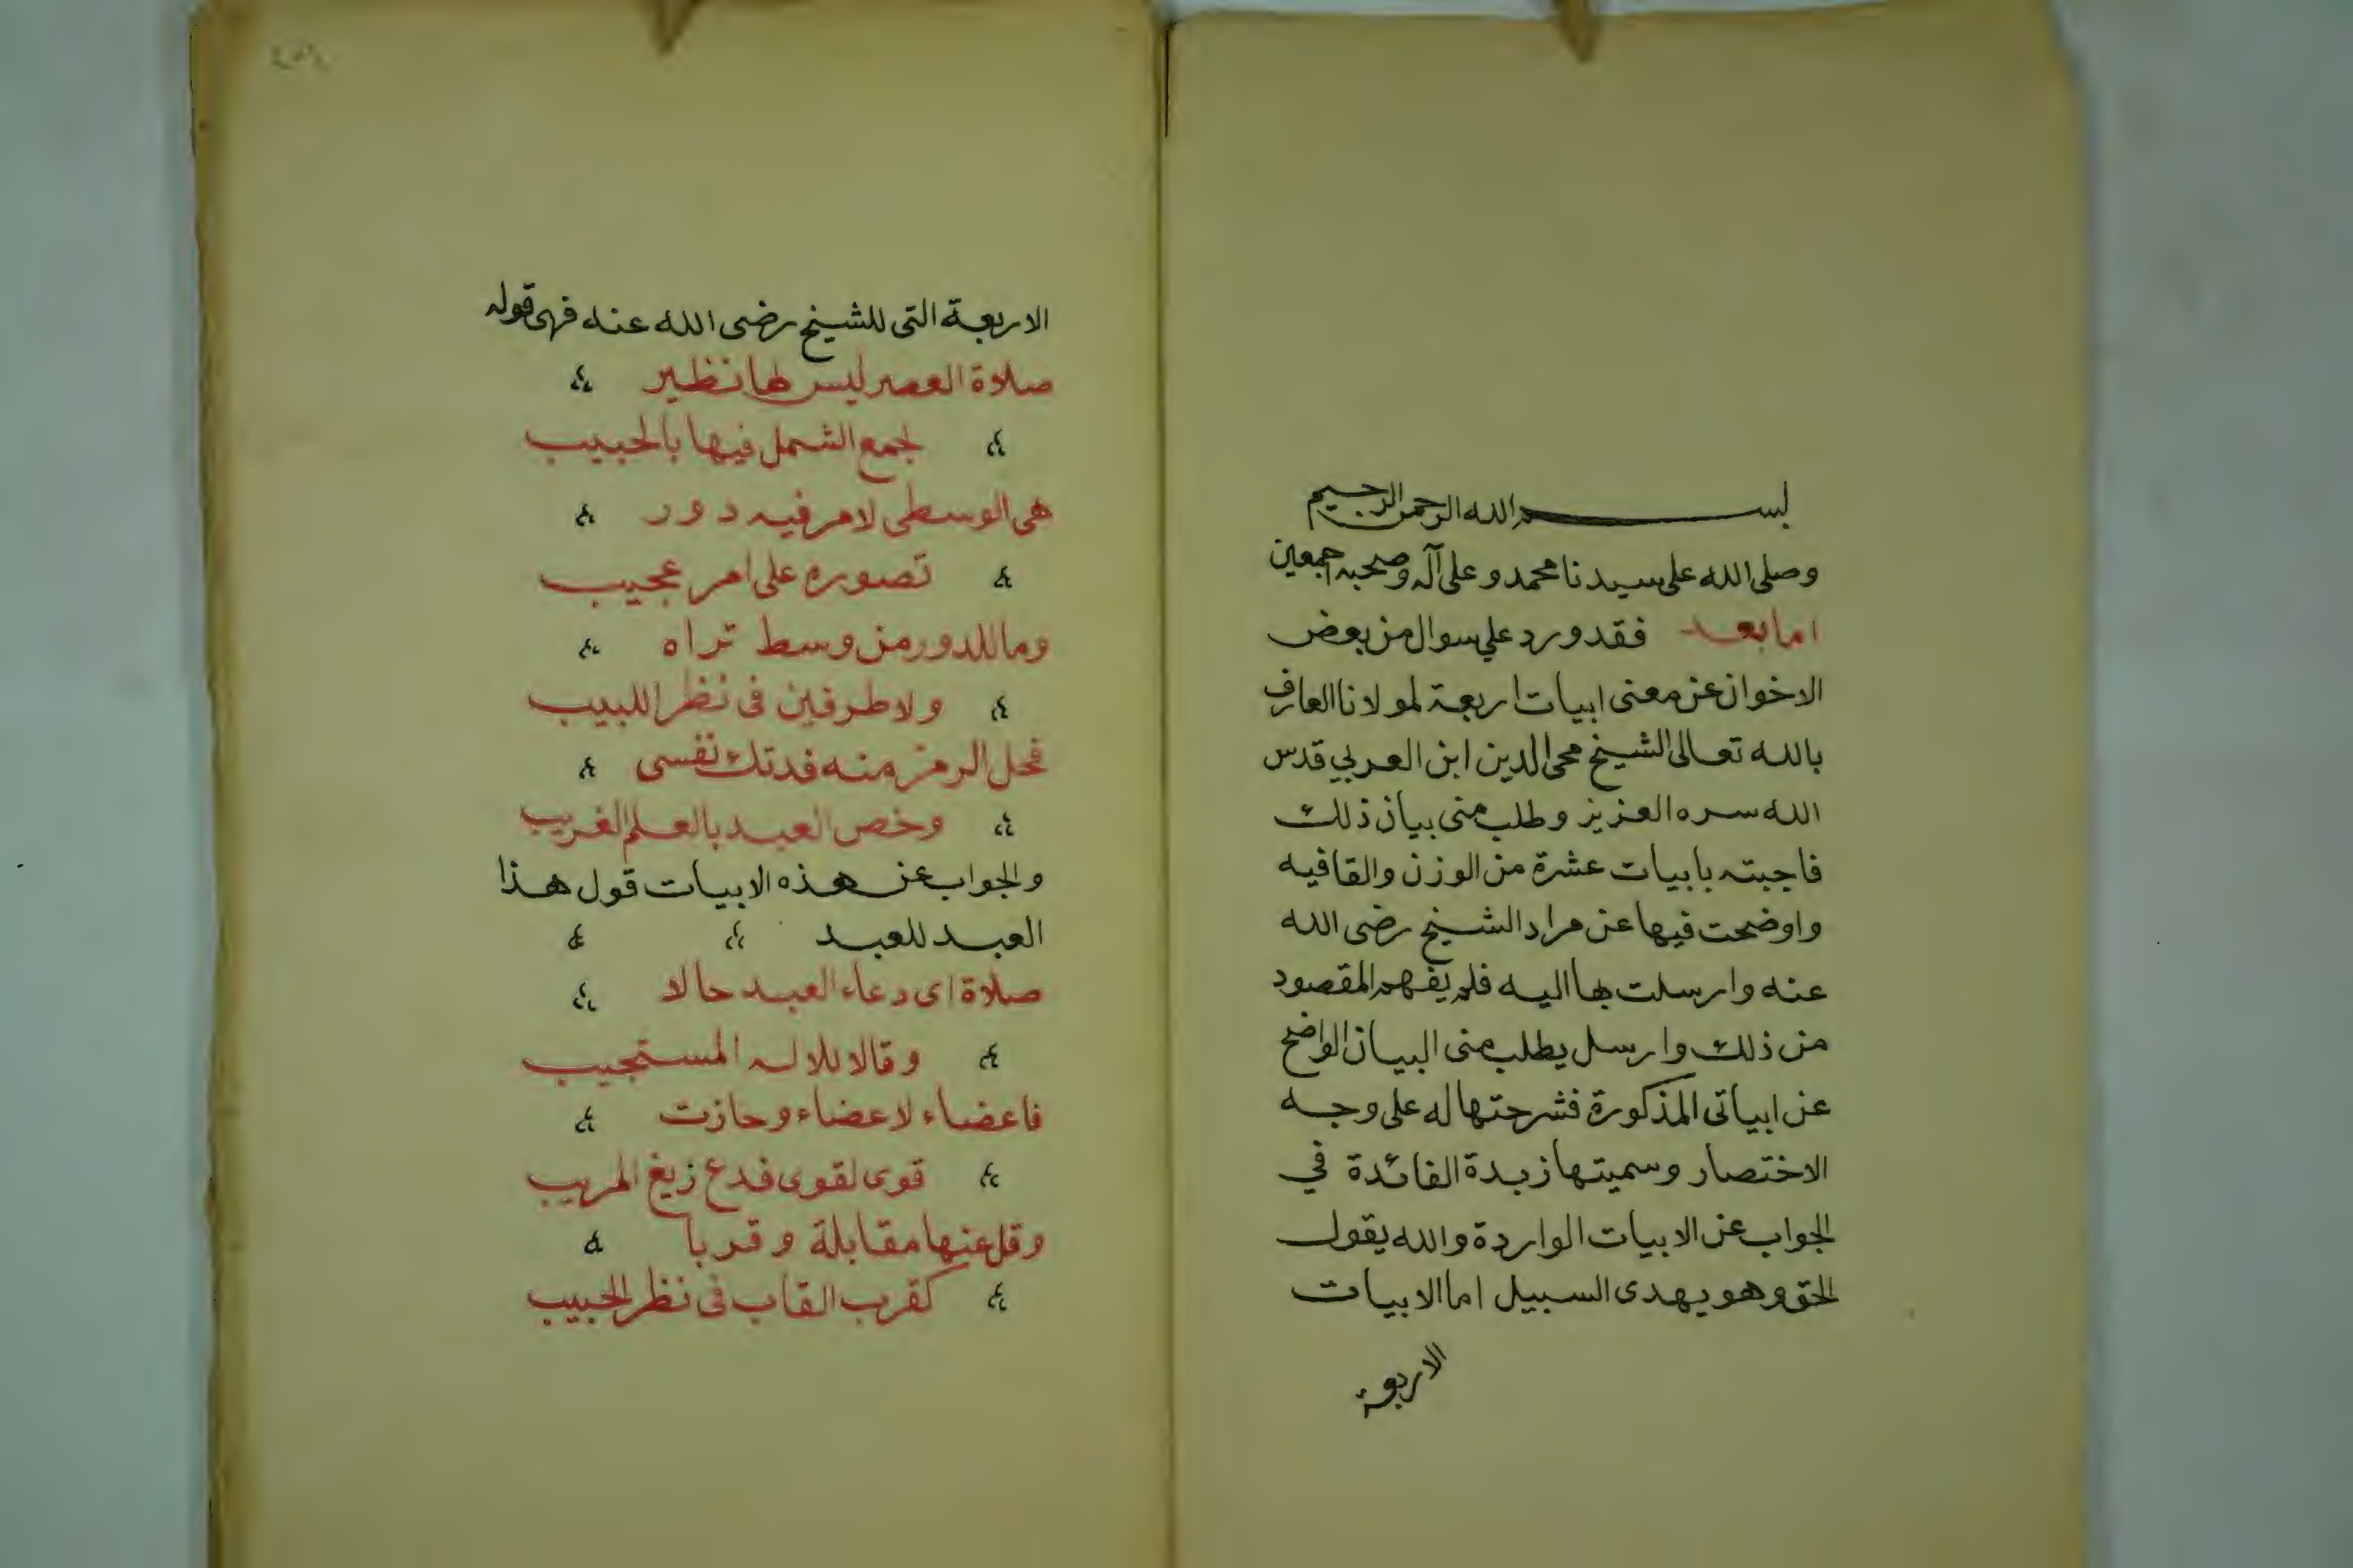 بسم الله الرحمن الرحيم
وصلى الله على سيدنا محمد وعلى آله وصحبه اجمعين
اما بعد فقد ورد علي سوال من بعض
الاخوان عن معنى ابيات اربعة لمولانا العارف
بالله تعالى الشيخ محى الدين ابن العربي قدس
الله سره العزيز وطلب منى بيان ذلك
فاجبته بابيات عشرة من الوزن والقافيه
واوضحت فيها عن مراد الشيخ رضى الله
عنه وارسلت بها اليه فلم يفهم المقصود
من ذلك وارسل يطلب منى البيان الواضح
عن ابياتى المذكورة فشرحتها له على وجه
الاختصار وسميتها زبدة الفائدة في
الجواب عن الابيات الواردة والله يقول
الحق وهو يهدى السبيل اما الابيات
الاربعة
الاربعة التى للشيخ رضى الله عنه فهى قوله
صلاة العصر ليس لها نظير
لجمع الشمل فيها بالحبيب
هى الوسطى لامر فيه دور
تصوره على امر عجيب
وما للدور من وسط تراه
ولا طرفين فى نظر اللبيب
فحل الرمز منه فدتك نفسى
وخص العبد بالعلم الغريب
والجواب عن هذه الابيات قول هذا
العبد للعبد
صلاة اى دعاء العبد حالا
وقالا للاله المستجيب
فاعضاء لاعضاء وحازت
قوى لقوى فدع زيغ المريب
وقل عنها مقابلة وقربا
كقرب القاب فى نظر الحبيب